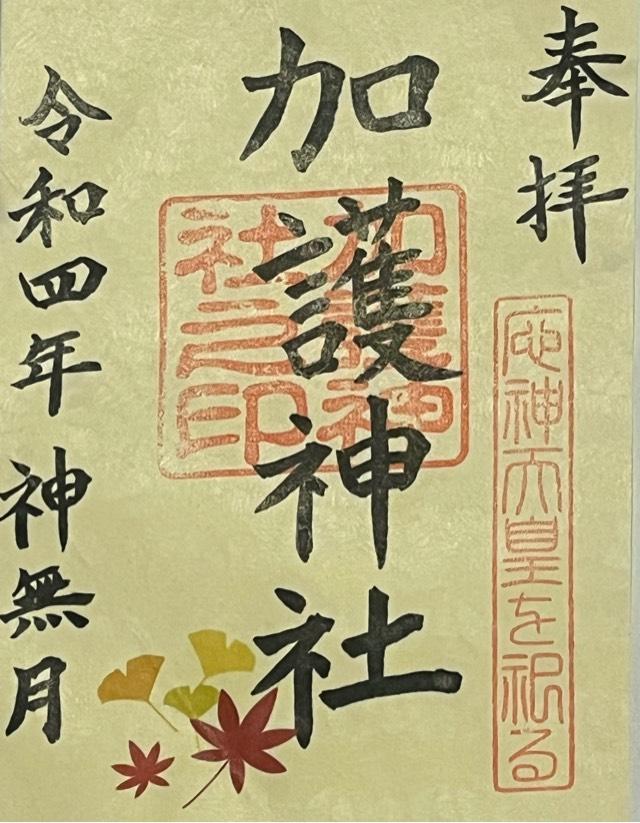 奉拝
應神天皇を祀る
加護神社
加護神社之印
令和四年 神無月